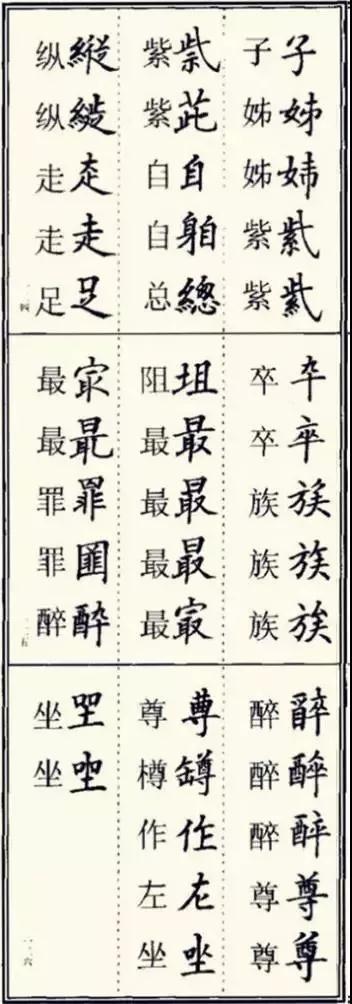 子姊姉紫紫
子姊姊紫紫
紫茈自躬總
紫紫自自总
縱縱赱走足
纵纵走走足
一二四
卒卒族族族
卒卒族族族
坥最最最㝡
阻最最最最
㝡最罪酔
最最罪罪醉
一二五
醉醉酔尊尊
醉醉醉尊尊
尊罇作左坐
尊樽作左坐
坐坐
坐坐
一二六